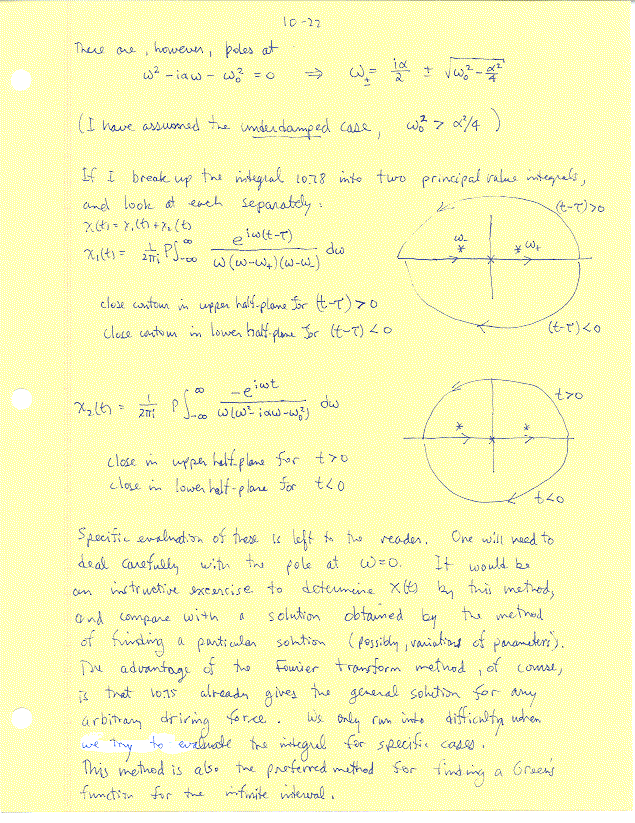 10-22
There are, however, poles at
ω² - iαω - ω₀² = 0 ⇒ ω± = iα/2 ± √(ω₀² - α²/4)
(I have assumed the underdamped case, ω₀² > α²/4 )
If I break up the integral 10.78 into two principal value integrals,
and look at each separately:
x(t) = x₁(t) + x₂(t)
(t-τ)>0
x₁(t) = 1/2πi P∫₋∞^∞ e^{iω(t-τ)} / ω(ω-ω₊)(ω-ω₋) dω
ω₋
ω₊
close contour in upper half-plane for (t-τ) > 0
close contour in lower half-plane for (t-τ) < 0
(t-τ)<0
x₂(t) = 1/2πi P∫₋∞^∞ -e^{iωt} / ω(ω²-iαω-ω₀²) dω
t>0
close in upper half-plane for t>0
close in lower half-plane for t<0
t<0
Specific evaluation of these is left to the reader. One will need to
deal carefully with the pole at ω=0. It would be
an instructive excercise to determine x(t) by this method,
and compare with a solution obtained by the method
of finding a particular solution (possibly, variations of parameters).
The advantage of the Fourier transform method, of course,
is that 10.75 already gives the general solution for any
arbitrary driving force. We only run into difficulty when
we try to evaluate the integral for specific cases.
This method is also the preferred method for finding a Green's
function for the infinite interval.